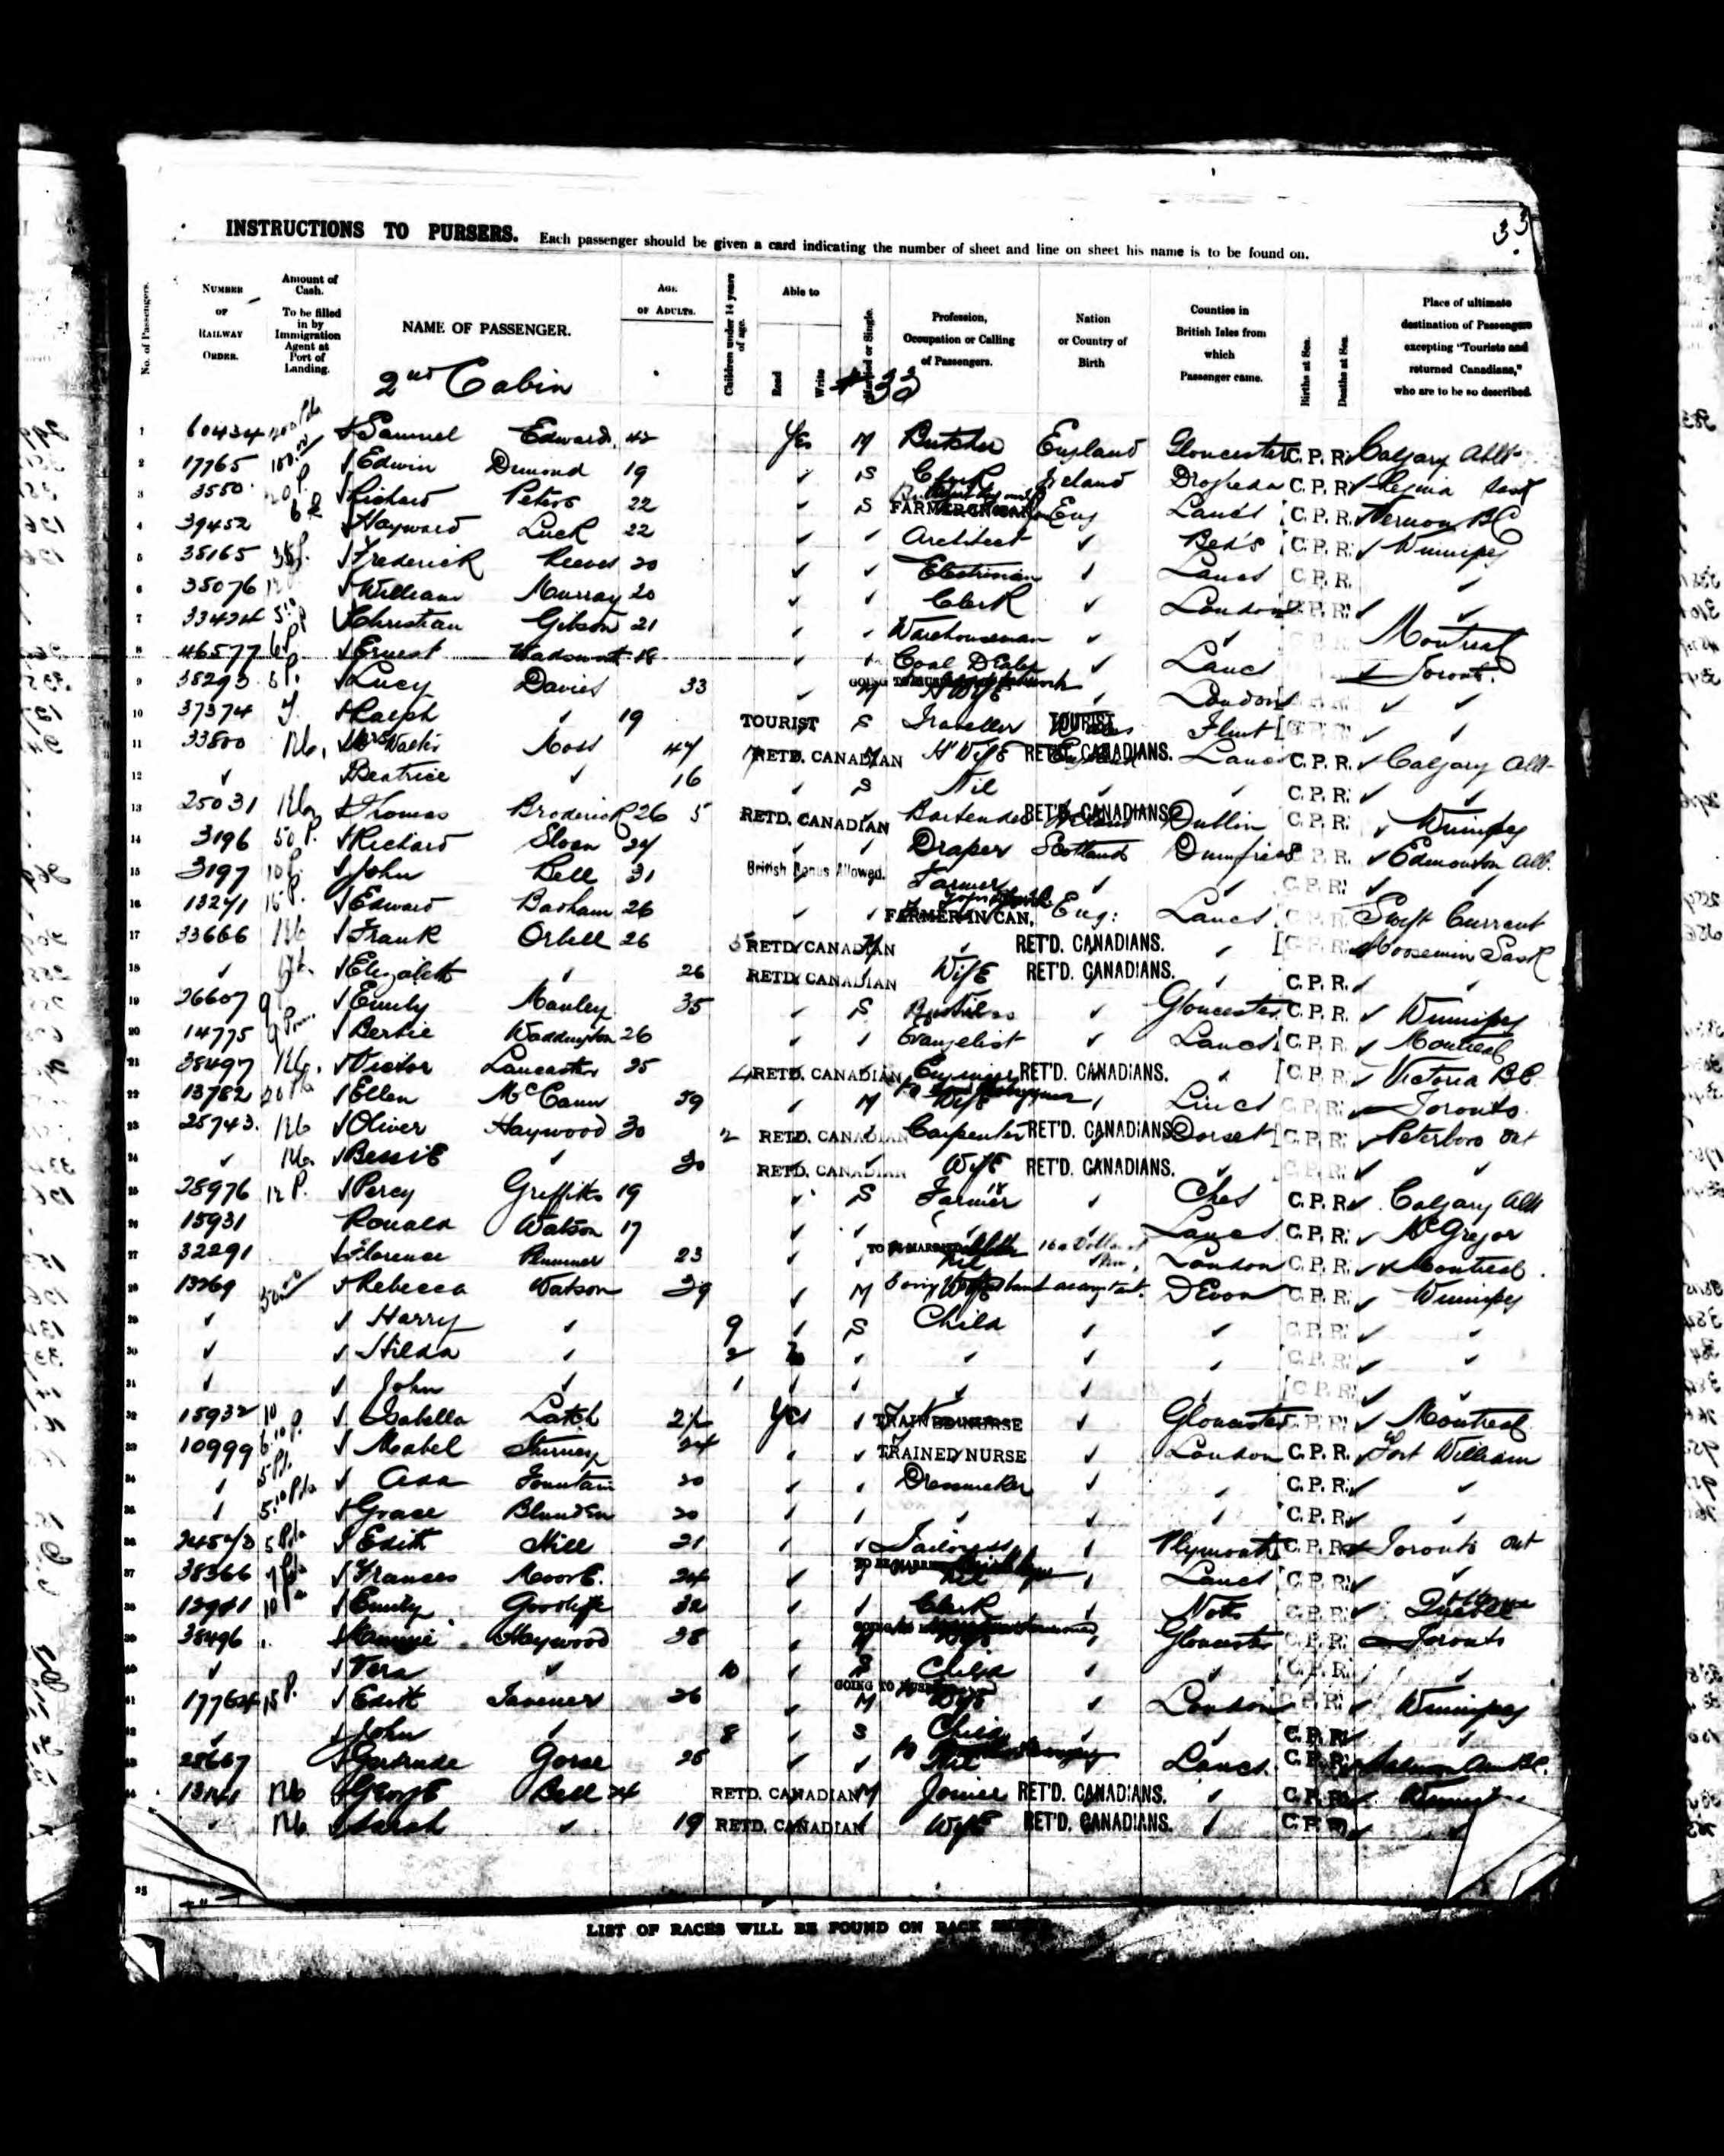 33
INSTRUCTIONS TO PURSERS. Each passenger should be given a card indicating the number of sheet and line on sheet his name is to be found on.
No. of Passengers. NUMBER OF RAILWAY ORDER. Amount of Cash. To be filled in by Immigration Agent at Port of Landing. NAME OF PASSENGER. AGE OF ADULTS. Children under 14 years of age. Able to Read Write Married or Single. Profession, Occupation or Calling of Passengers. Nation or Country of Birth Counties in British Isles from which Passenger came. Births at Sea. Deaths at Sea. Place of ultimate destination of Passengers excepting "Tourists and returned Canadians," who are to be so described.
2nd Cabin #33
1 60434 ✓ Samuel Edwards 42 Yes M Butcher England Gloucester C.P.R. Calgary Alta
2 17765 ✓ Edwin Dimond 19 ✓ S Clerk Ireland Drogheda C.P.R. ✓ Regina Sask
3 3550 ✓ Richard Peters 22 ✓ S FARMER IN CAN. Eng Lancs C.P.R. Vernon BC
4 39452 ✓ Hayward Luck 22 ✓ ✓ Architect ✓ Bed's C.P.R. ✓ Winnipeg
5 35165 ✓ Frederick Reeves 20 ✓ ✓ Electrician ✓ Lancs C.P.R. ✓
6 35076 ✓ William Murray 20 ✓ ✓ Clerk ✓ London C.P.R. ✓ ✓
7 33424 ✓ Christian Gibson 21 ✓ ✓ Warehouseman ✓ ✓ Montreal
8 46577 ✓ Ernest 18 ✓ Coal Dealer ✓ Lancs ✓ Toronto
9 38293 ✓ Lucy Davies 33 ✓ M H Wife ✓ London ✓ ✓
10 37374 ✓ Ralph ✓ 19 TOURIST S Traveller TOURIST Flint ✓ ✓
11 33800 ✓ Mrs Walter Moss 47 RETD. CANADIAN M H Wife RET'D. CANADIANS. Lancs C.P.R. ✓ Calgary Alta
12 ✓ Beatrice ✓ 16 ✓ S Nil ✓ C.P.R. ✓ ✓
13 25031 ✓ Thomas Broderick 26 5 RETD. CANADIAN ✓ Bartender RET'D. CANADIANS Dublin C.P.R. ✓ Winnipeg
14 3196 50 P. ✓ Richard Sloan 24 ✓ ✓ Draper Scotland Dumfries C.P.R. ✓ Edmonton Alb.
15 3197 ✓ John Bell 31 British Bonus Allowed. Farmer ✓ ✓ C.P.R. ✓ ✓
16 13241 15 P. ✓ Edward Basham 26 ✓ ✓ FARMER IN CAN. Eng: Lancs C.P.R. Swift Current
17 33666 ✓ Frank Orbell 26 RETD. CANADIAN M ✓ RET'D. CANADIANS. ✓ C.P.R. Moosemin Sask
18 ✓ ✓ Elizabeth ✓ 26 RETD. CANADIAN ✓ Wife RET'D. CANADIANS. ✓ C.P.R. ✓ ✓
19 26607 ✓ Emily Manley 35 ✓ S ✓ Gloucester C.P.R. ✓ Winnipeg
20 14775 ✓ Bertie Waddington 26 ✓ ✓ Evangelist ✓ Lancs C.P.R. ✓ Montreal
21 38497 ✓ Victor Lancaster 25 4 RETD. CANADIAN Engineer RET'D. CANADIANS. ✓ C.P.R. ✓ Victoria BC
22 13782 ✓ Ellen McCann 39 ✓ M Wife ✓ C.P.R. ✓ Toronto
23 25743 ✓ Oliver Haywood 30 2 RETD. CANADIAN Carpenter RET'D. CANADIANS Dorset C.P.R. ✓ Peterboro Ont
24 ✓ ✓ Bessie ✓ 30 RETD. CANADIAN Wife RET'D. CANADIANS. ✓ C.P.R. ✓ ✓
25 28976 12 P. ✓ Percy Griffiths 19 ✓ S Farmer ✓ Ches C.P.R. ✓ Calgary Alta
26 15931 Ronald Watson 17 ✓ ✓ ✓ ✓ Lancs C.P.R. ✓ McGregor
27 32291 ✓ Florence Plummer 23 ✓ ✓ TO BE MARRIED Nil London C.P.R. ✓ Montreal
28 13269 ✓ Rebecca Watson 39 ✓ M Wife Devon C.P.R. ✓ Winnipeg
29 ✓ ✓ Harry ✓ 9 ✓ S Child ✓ ✓ C.P.R. ✓ ✓
30 ✓ ✓ Hilda ✓ 2 No ✓ ✓ ✓ ✓ C.P.R. ✓ ✓
31 ✓ ✓ John ✓ 1 ✓ ✓ ✓ ✓ ✓ C.P.R. ✓ ✓
32 15932 ✓ Isabella Latch Yes ✓ TRAINED NURSE ✓ Gloucester C.P.R. ✓ Montreal
33 10999 ✓ Mabel 24 ✓ ✓ TRAINED NURSE ✓ London C.P.R. ✓ Fort William
34 ✓ ✓ Ada Fountain 20 ✓ ✓ Dressmaker ✓ ✓ C.P.R. ✓ ✓
35 ✓ ✓ Grace Blunden 20 ✓ ✓ ✓ ✓ ✓ C.P.R. ✓
36 ✓ Edith Hill 21 ✓ ✓ Tailoress ✓ Plymouth C.P.R. Toronto Ont
37 38366 ✓ Frances Moore 24 ✓ ✓ TO BE MARRIED Nil ✓ Lancs C.P.R. ✓ ✓
38 12941 ✓ Emily Goodliffe 32 ✓ ✓ Clerk ✓ Notts C.P.R. ✓
39 38496 ✓ Haywood 28 ✓ M Wife ✓ Gloucester C.P.R. Toronto
40 ✓ ✓ Vera ✓ 10 ✓ S Child ✓ ✓ C.P.R. ✓
41 17764 15 P. ✓ Edith Taverner 26 ✓ M GOING TO HUSBAND Wife ✓ London C.P.R. ✓ Winnipeg
42 ✓ ✓ John ✓ 8 ✓ S Child ✓ ✓ C.P.R. ✓ ✓
43 28667 Gertrude Gorse 28 ✓ ✓ Nil Lancs C.P.R. Salmon Arm BC.
44 13141 George Bell 24 RETD. CANADIAN M Joiner RET'D. CANADIANS. ✓ C.P.R. ✓
✓ Sarah ✓ 19 RETD. CANADIAN ✓ Wife RET'D. CANADIANS. ✓ C.P.R. ✓ ✓
LIST OF RACES WILL BE FOUND ON BACK